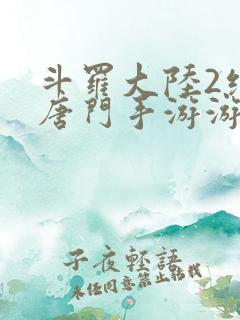 斗羅大陸2
唐門手游游
子夜輕語
未經同意禁止轉載